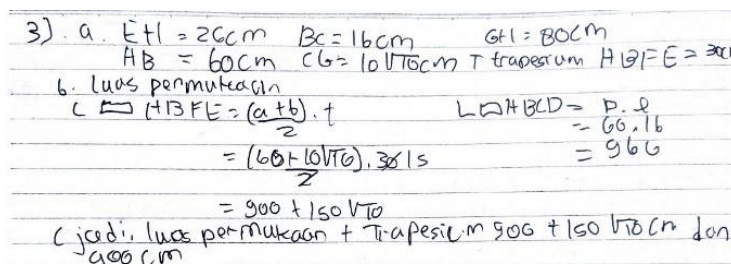 3). a. EH = 26cm BC = 16cm GH = 80cm
HB = 60cm CG = 10√10cm T trapesium HBFE = 30c
b. luas permukaan
L ▭ HBFE = (a+b)/2 . t L▭HBCD = p.l
= (60+10√10)/2 . 30 15 = 60.16
= 900 + 150√10 = 960
(jadi, luas permukaan + Trapesium 900 + 150√10 cm dan
900 cm